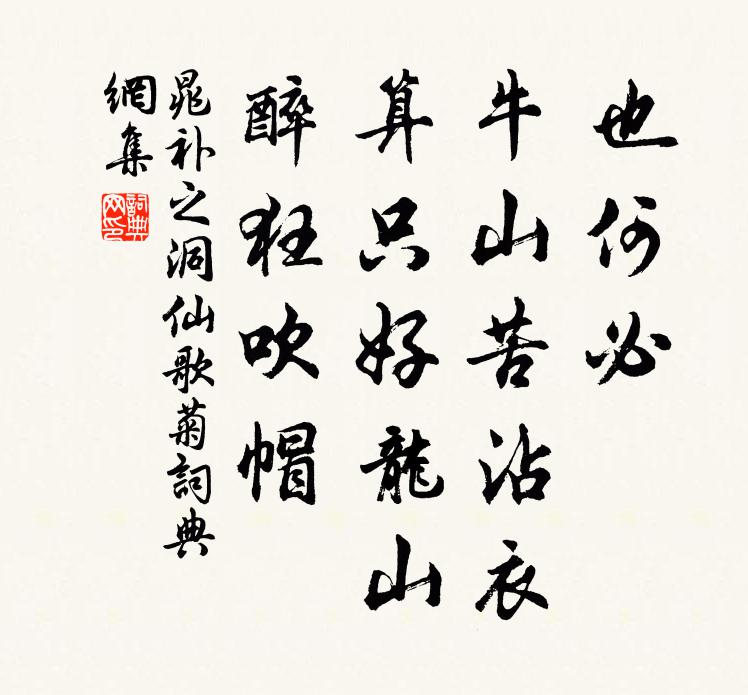 也何必
牛山苦沾衣
算只好龍山
醉狂吹帽
晁补之洞仙歌菊詞典
網集
詞典
网印